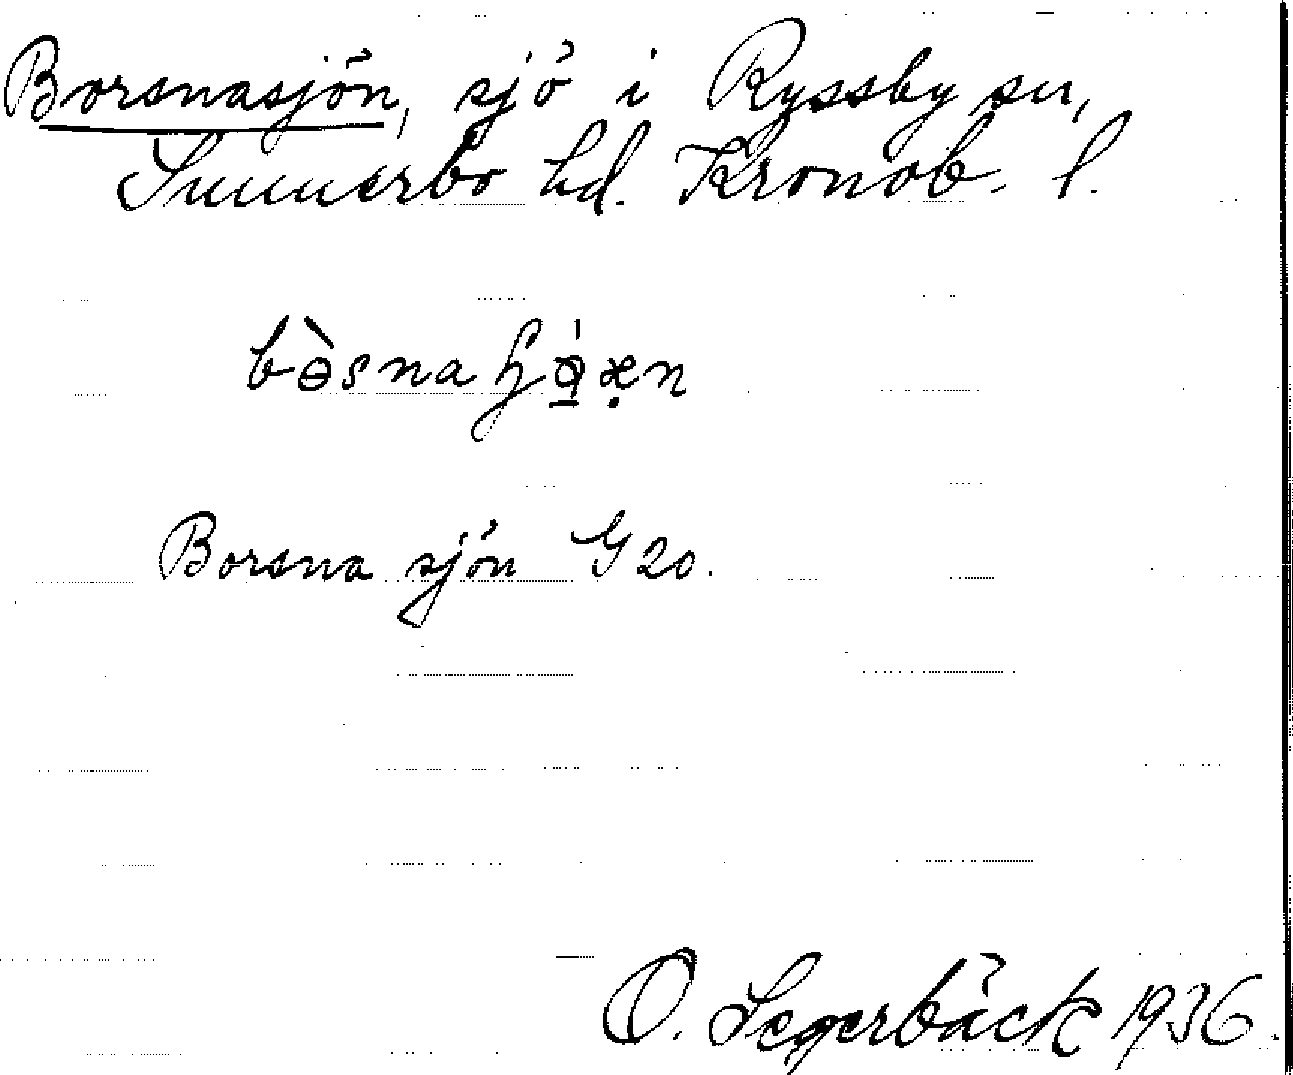 Borsnasjön, sjö i Ryssby sn,
Sunnerbo hd. Kronob. l.
Borsna sjön G 20.
O. Segerbäck 1936.